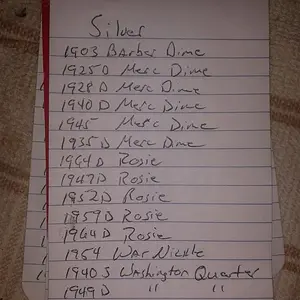 Silver
1903 Barber Dime
1925 D Merc Dime
1928 D Merc Dime
1940 D Merc Dime
1945 Merc Dime
1935 D Merc Dime
1964 D Rosie
1947 D Rosie
1952 D Rosie
1959 D Rosie
1964 D Rosie
1954 War Nickle
1940 S Washington Quarter
1949 D " "